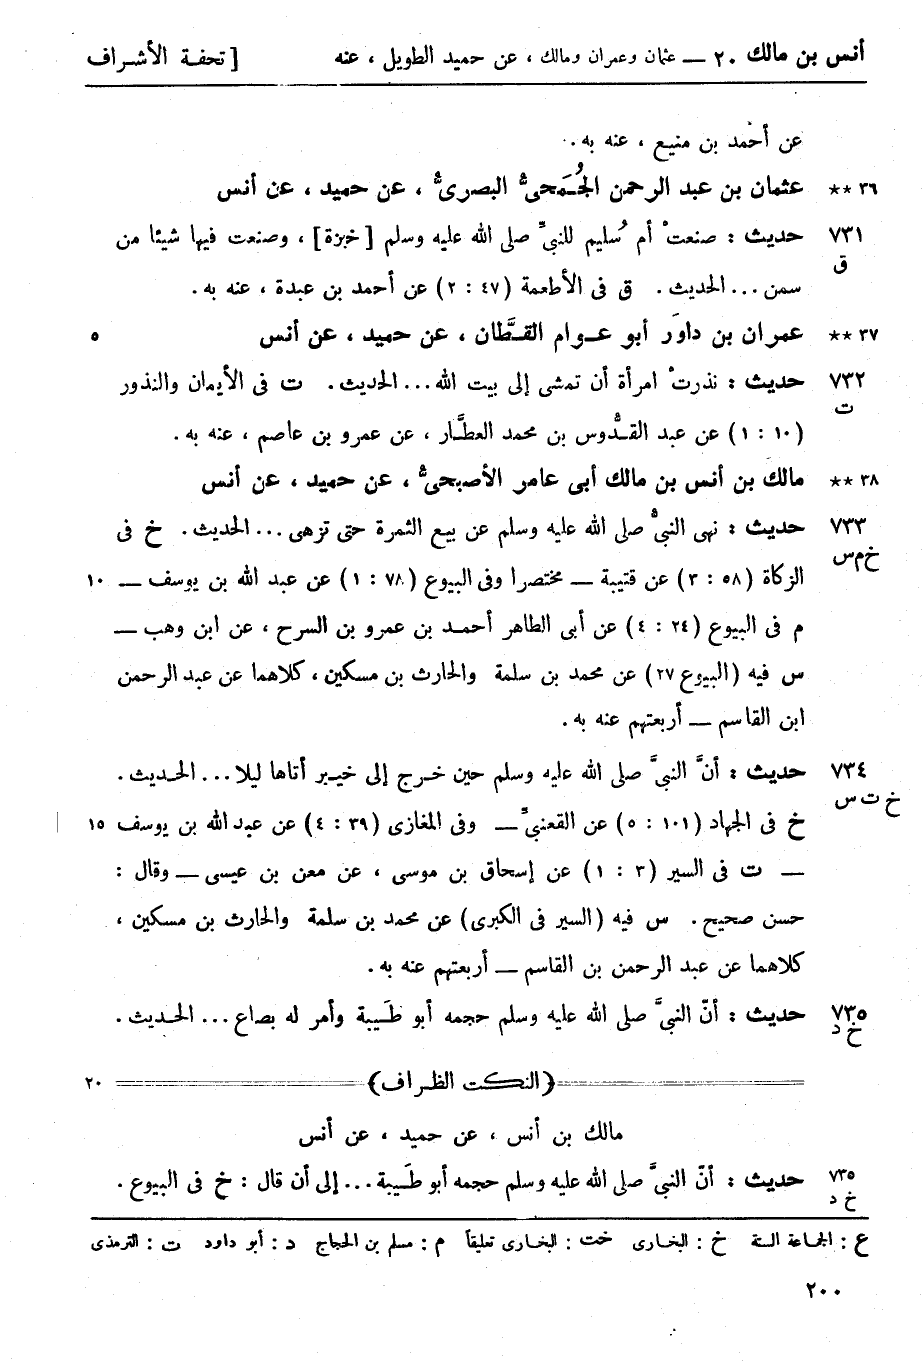 أنس بن مالك ٢٠ — عثمان وعمران ومالك ، عن حميد الطويل ، عنه [ تحفة الأشراف
عن أحمد بن منيع ، عنه به .
٣٦ ** عثمان بن عبد الرحمن الجُمَحىُّ البصرىُّ ، عن حميد ، عن أنس
٧٣١ حديث : صنعتْ أم سُليم للنبىِّ صلى الله عليه وسلم [ خبزة ] ، وصنعت فيها شيئا من
ق
سمن ... الحديث . ق فى الأطعمة (٤٧ : ٢) عن أحمد بن عبدة ، عنه به .
٣٧ ** عمران بن داوَر أبو عوام القطَّان ، عن حميد ، عن أنس ٥
٧٣٢ حديث : نذرتْ امرأة أن تمشى إلى بيت الله ... الحديث . ت فى الأيمان والنذور
ت
(١٠ : ١) عن عبد القدُّوس بن محمد العطَّار ، عن عمرو بن عاصم ، عنه به .
٣٨ ** مالك بن أنس بن مالك أبى عامر الأصبحىُّ ، عن حميد ، عن أنس
٧٣٣ حديث : نهى النبىُّ صلى الله عليه وسلم عن بيع الثمرة حتى تزهى ... الحديث . خ فى
خ م س
الزكاة (٥٨ : ٣) عن قتيبة — مختصرا وفى البيوع (٧٨ : ١) عن عبد الله بن يوسف — ١٠
م فى البيوع (٢٤ : ٤) عن أبى الطاهر أحمد بن عمرو بن السرح ، عن ابن وهب —
س فيه (البيوع ٢٧) عن محمد بن سلمة والحارث بن مسكين ، كلاهما عن عبد الرحمن
ابن القاسم — أربعتهم عنه به .
٧٣٤ حديث : أنَّ النبىَّ صلى الله عليه وسلم حين خرج إلى خيبر أتاها ليلا ... الحديث .
خ ت س
خ فى الجهاد (١٠١ : ٥) عن القعنبىِّ — وفى المغازى (٣٩ : ٤) عن عبد الله بن يوسف ١٥
— ت فى السير (٣ : ١) عن إسحاق بن موسى ، عن معن بن عيسى — وقال :
حسن صحيح . س فيه (السير فى الكبرى) عن محمد بن سلمة والحارث بن مسكين ،
كلاهما عن عبد الرحمن بن القاسم — أربعتهم عنه به .
٧٣٥ حديث : أنّ النبىَّ صلى الله عليه وسلم حجمه أبو طَيبة وأمر له بصاع ... الحديث .
خ د
(النكت الظراف) ٢٠
مالك بن أنس ، عن حميد ، عن أنس
٧٣٥ حديث : أنّ النبىَّ صلى الله عليه وسلم حجمه أبو طَيبة ... إلى أن قال : خ فى البيوع .
خ د
ع : الجماعة الستة خ : البخارى خت : البخارى تعليقاً م : مسلم بن الحجاج د : أبو داود ت : الترمذى
٢٠٠